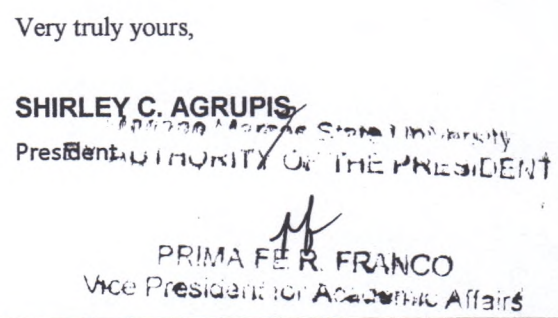 Very truly yours,
SHIRLEY C. AGRUPIS
Mariano Marcos State University
President
BY AUTHORITY OF THE PRESIDENT
PRIMA FE R. FRANCO
Vice President for Academic Affairs